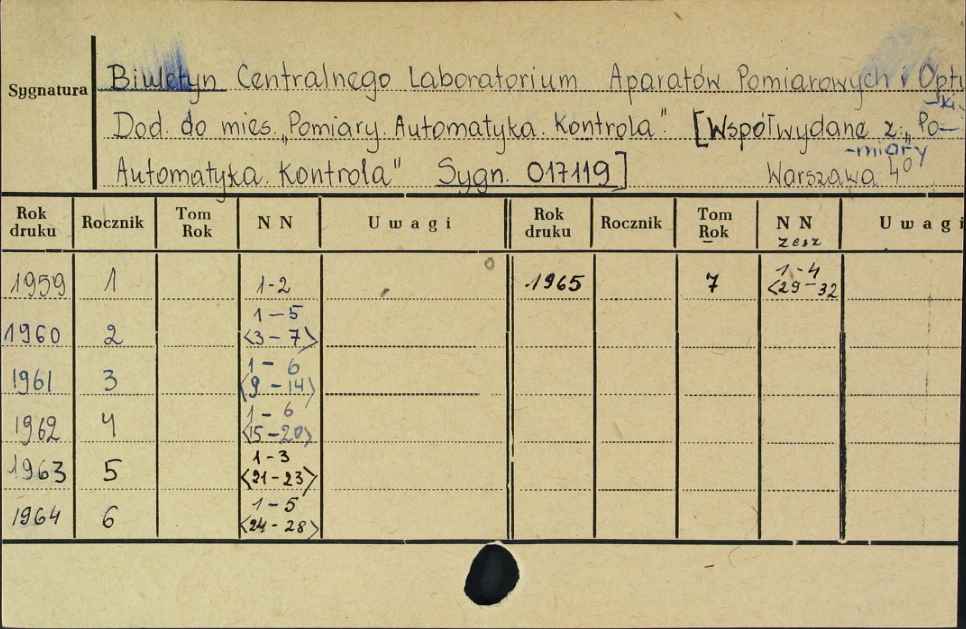 Sygnatura
Biuletyn Centralnego Laboratorium Aparatów Pomiarowych i Opty
-ki.
Dod. do mies. „Pomiary. Automatyka. Kontrola". [Współwydane z: „Po-
-miary
Automatyka. Kontrola" Sygn. 017119] Warszawa 4°
Rok druku Rocznik Tom Rok N N Uwagi Rok druku Rocznik Tom Rok N N zesz Uwagi
1959 1 1-2 1965 7 1-4 <29-32
1960 2 1-5 <3-7>
1961 3 1-6 <9-14>
1962 4 1-6 <15-20>
1963 5 1-3 <21-23>
1964 6 1-5 <24-28>